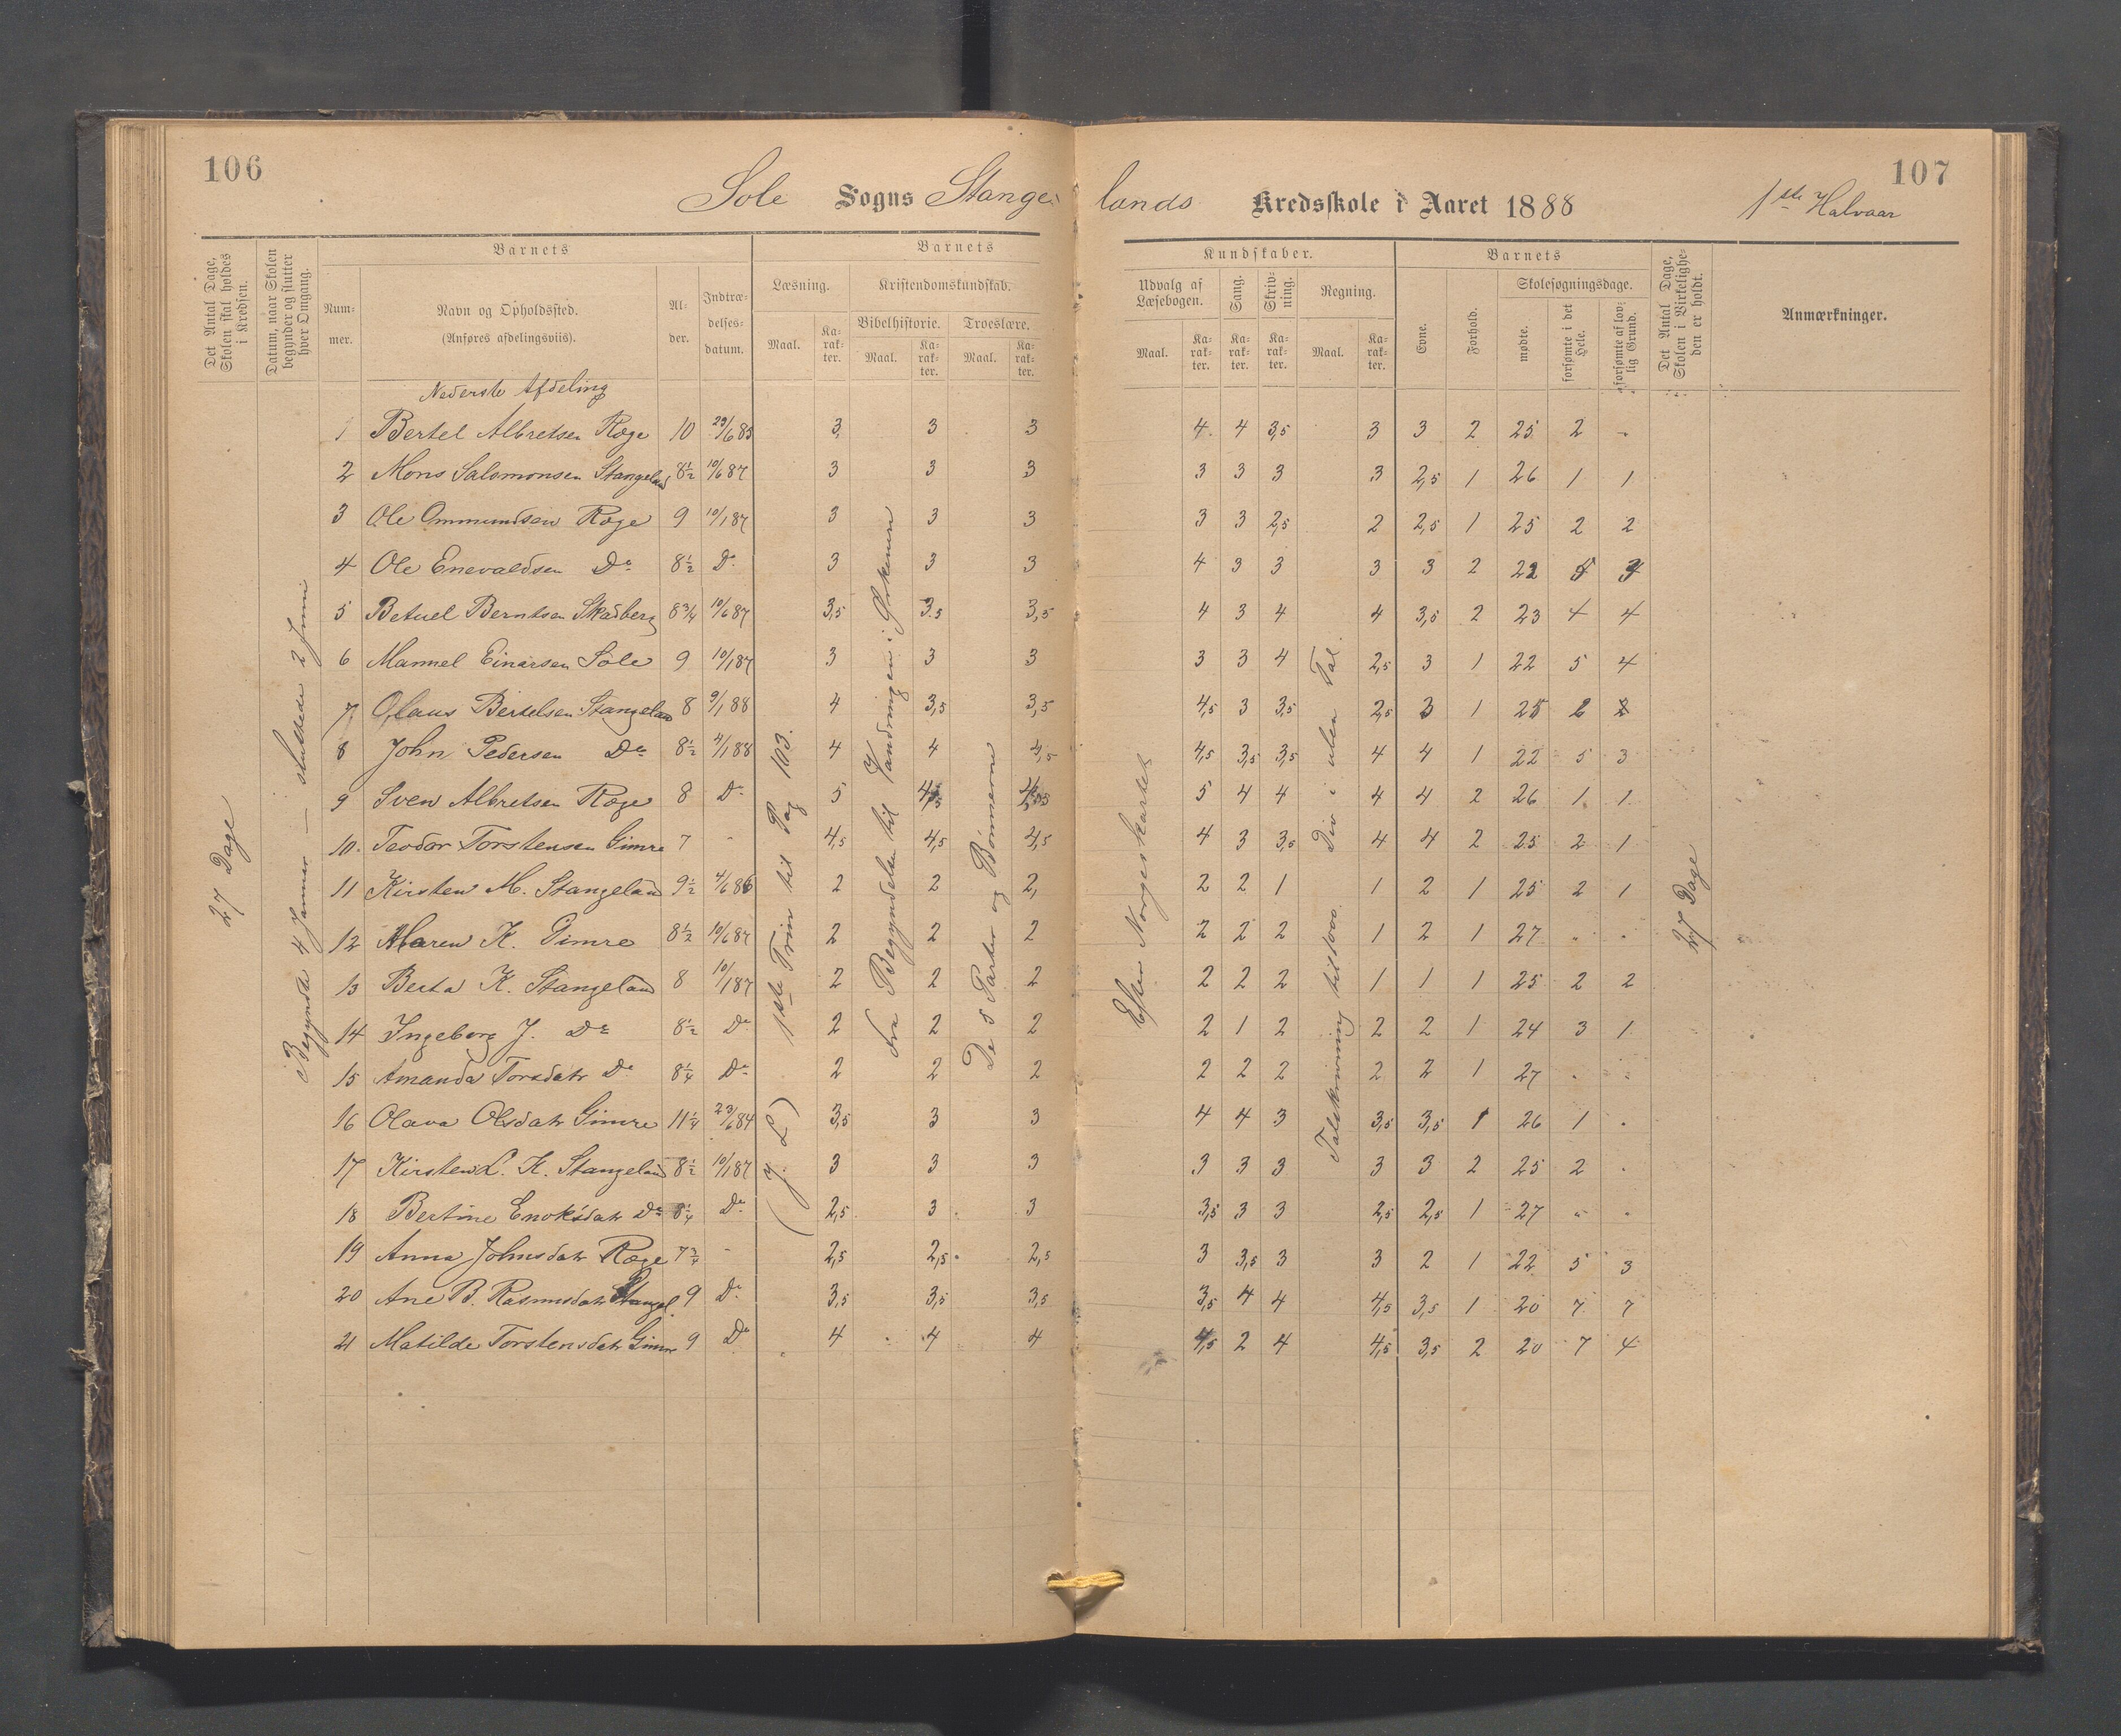 106
107
Sole Sogns Stangelands Kredsskole i Aaret 1888 1ste Halvaar
Det Antal Dage, Skolen skal holdes i Kredsen.
Datum, naar Skolen begynder og slutter hver Omgang.
Barnets
Nummer.
Navn og Opholdssted. (Anføres afdelingsviis).
Alder.
Indtrædelsesdatum.
Barnets Kundskaber.
Læsning.
Maal. Karakter.
Kristendomskundskab.
Bibelhistorie. Troeslære.
Maal. Karakter. Maal. Karakter.
Udvalg af Læsebogen.
Maal. Karakter.
Sang. Karakter.
Skrivning. Karakter.
Regning.
Maal. Karakter.
Barnets
Evne. Forhold.
Skolesøgningsdage.
mødte. forsømte i det Hele. forsømte af lovlig Grund.
Det Antal Dage, Skolen i Virkeligheden er holdt.
Anmærkninger.
27 Dage
Begyndte 4 Januar — sluttede 2 Juni
1ste Trin til Pag 103.
(J. L)
Fra Begyndelsen til Vandringen i Ørkenen
De 5 Parter og Bønnerne
Efter Norgeskartet
Talskrivning til 1000. Div i ulen Tal.
27 Dage
Nederste Afdeling
1 Bertel Albretsen Ræge 10 29/6 85 3 3 3 4 4 3,5 3 3 2 25 2 -
2 Mons Salomonsen Stangeland 8½ 10/6 87 3 3 3 3 3 3 3 2,5 1 26 1 1
3 Ole Ommundsen Ræge 9 10/1 87 3 3 3 3 3 2,5 2 2,5 1 25 2 2
4 Ole Enevaldsen Do 8½ Do 3 3 3 4 3 3 3 3 2 22 5
5 Betuel Berntsen Skadberg 8¾ 10/6 87 3,5 3,5 3,5 4 3 4 4 3,5 2 23 4 4
6 Mannel Einarsen Sole 9 10/1 87 3 3 3 3 3 4 2,5 3 1 22 5 4
7 Olaus Bertelsen Stangeland 8 9/1 88 4 3,5 3,5 4,5 3 3,5 2,5 3 1 25 2 2
8 John Pedersen Do 8½ 4/1 88 4 4 4,5 4,5 3,5 3,5 4 4 1 22 5 3
9 Sven Albretsen Ræge 8 Do 5 4,5 4,5 5 4 4 4 4 2 26 1 1
10. Teodor Torstensen Gimre 7 - 4,5 4,5 4,5 4 3 3,5 4 4 2 25 2 1
11 Kirsten M. Stangeland 9½ 4/6 86 2 2 2, 2 2 1 1 2 1 25 2 1
12 Maren K. Gimre 8½ 10/6 87 2 2 2 2 2 2 1 2 1 27 . .
13 Berta K. Stangeland 8 10/1 87 2 2 2 2 2 2 1 1 1 25 2 2
14 Ingeborg J. Do 8½ Do 2 2 2 2 1 2 2 2 1 24 3 1
15 Amanda Torsdatr Do 8¼ Do 2 2 2 2 2 2 2 2 1 27 . .
16 Olava Olsdatr Gimre 11¼ 23/6 84 3,5 3 3 4 4 3 3,5 3,5 1 26 1 .
17 Kirsten L. K. Stangeland 8½ 10/1 87 3 3 3 3 3 3 3 3 2 25 2 .
18 Bertine Enoksdatr Do 8¼ Do 2,5 3 3 3,5 3 3 2,5 2,5 1 27 " .
19 Anna Johnsdatr Ræge 7¾ - 2,5 2,5 2,5 3 3,5 3 3 2 1 22 5 3
20 Ane B. Rasmusdatr Stangel. 9 Do 3,5 3,5 3,5 3,5 4 4 4,5 3,5 1 20 7 7
21 Matilde Torstensdatr Gimre 9 Do 4 4 4 4,5 2 4 4,5 3,5 2 20 7 4